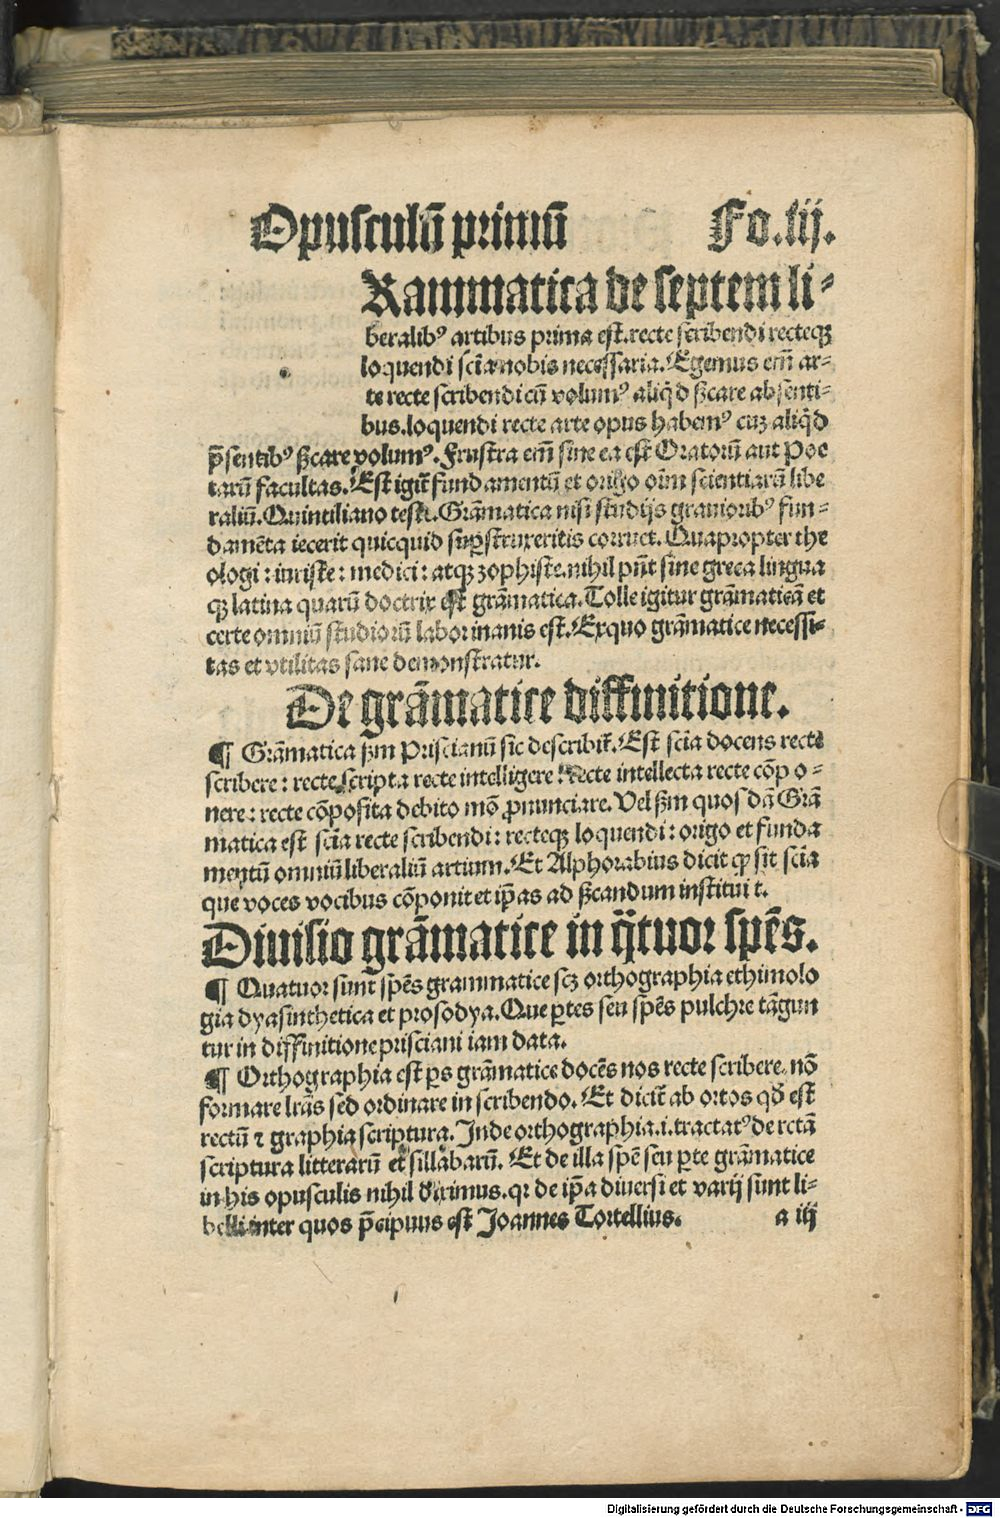 Opusculū primū Fo.iij.
Rammatica de septem li⸗
beralibꝰ artibus prima est.recte scribendi recteqꝫ
loquendi scīa nobis necessaria.Egemus em̄ ar⸗
te recte scribendi cū volumꝰ aliq̄d ſꝫcare absenti⸗
bus.loquendi recte arte opus habemꝰ cuꝫ aliq̄d
p̄sentibꝰ ſꝫcare volumꝰ.Frustra em̄ sine ea est Oratorū aut Poe
tarū facultas.Est igit̄ fundamentū et origo oīm scientiarū libe
raliū.Quintiliano teste.Grāmatica nisi studijs grauioribꝰ fun⸗
damēta iecerit quicquid suꝑstruxeritis corruet.Quapropter the
ologi:iuriste:medici:atqꝫ zophiste.nihil pn̄t sine greca lingua
qꝫ latina quarū doctrix est grāmatica.Tolle igitur grāmaticā et
certe omniū studiorū labor inanis est.Exquo grāmatice necessi⸗
tas et vtilitas sane demonstratur.
De grāmatice diffinitione.
¶ Grāmatica ẜm Priscianū sic describit̄.Est scīa docens recte
scribere:recte scripta recte intelligere:Recte intellecta recte cōpo⸗
nere:recte cōposita debito mō ꝓnunciare.Vel ẜm quosdā Grā
matica est scīa recte scribendi:recteqꝫ loquendi:origo et funda
mentū omniū liberaliū artium.Et Alphorabius dicit ꝙ sit scīa
que voces vocibus cōponit et ip̄as ad ſꝫcandum instituit.
Diuisio grāmatice in q̈tuor spēs.
¶ Quatuor sunt spēs grammatice scꝫ orthographia ethimolo
gia dyasinthetica et prosodya.Que ꝑtes seu spēs pulchre tāgun
tur in diffinitione prisciani iam data.
¶ Orthographia est ꝑs grāmatice docēs nos recte scribere.nō
formare lr̄as sed ordinare in scribendo.Et dicit̄ ab ortos qd̄ est
rectū ⁊ graphia scriptura.Inde orthographia.i.tractatꝰ de rctā
scriptura litterarū et sillabarū.Et de illa spē seu ꝑte grāmatice
in his opusculis nihil dicimus.qꝛ de ip̄a diuersi et varij sunt li⸗
belli inter quos p̄cipuus est Joannes Tortellius. a iij
Digitalisierung gefördert durch die Deutsche Forschungsgemeinschaft - DFG